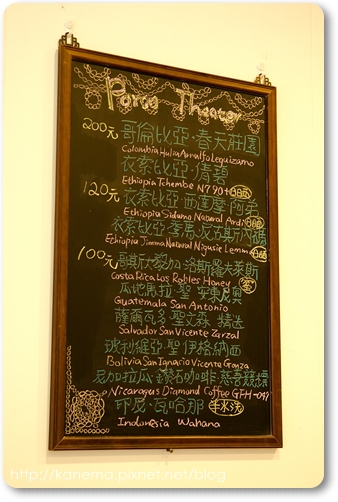 Porco Theater
200元 哥倫比亞·春天莊園
Colombia Huila Arnulfo Leguizamo
衣索比亞·倩碧
Ethiopia Tchembe N790+ 日曬
120元 衣索比亞·西達摩·阿朵
Ethiopia Sidamo Natural Ardi 日曬
衣索比亞·季馬·尼吉斯·
Ethiopia Jimma Natural Nigusie Lemma 日曬
100元 哥斯大黎加·洛斯羅大萊斯
Costa Rica Los Robles Honey 蜜
瓜地馬拉·聖·安東尼奧
Guatemala San Antonio
薩爾瓦多·聖文森 精選
Salvador San Vicente Zarzal
玻利維亞·聖伊格納西
Bolivia San Ignacio Vicente Gonza
尼加拉瓜·鑽石咖啡·慈善競標
Nicaragua Diamond Coffee GFH-091
印尼·瓦哈那 半水洗
Indonesia Wahana
http://kanema.pixnet.net/blog